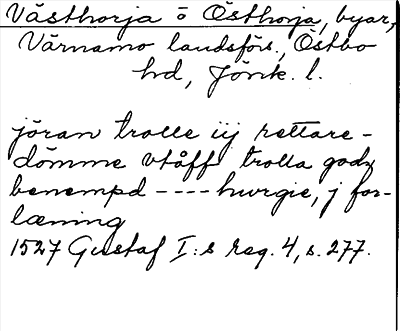 Västhorja o Östhorja, byar,
Värnamo landsförs., Östbo
hd, Jönk. l.
jöran trolle iij rettare-
dömme vtåff trolla godz
benempd ---- hurgie, j for-
læning
1527 Gustaf I:s reg. 4, s. 277.